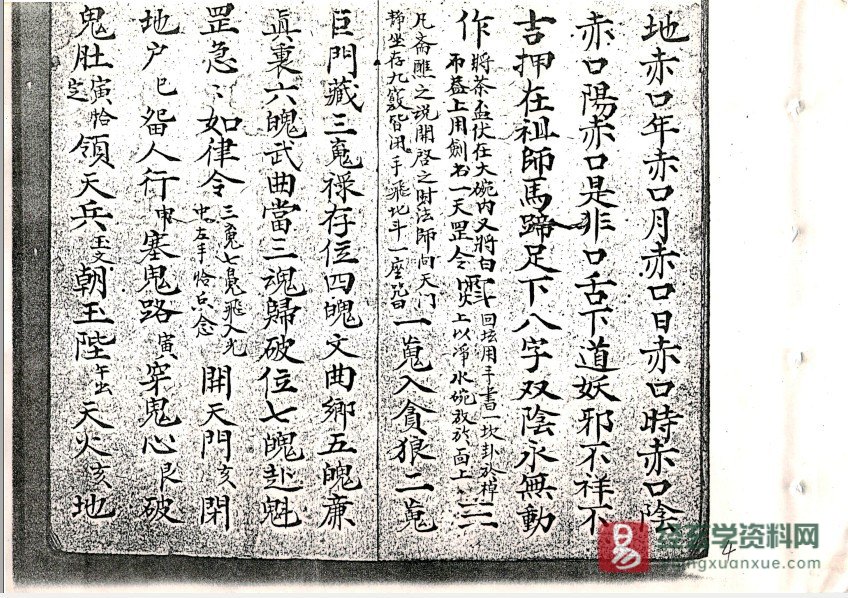 地赤口年赤口月赤口日赤口時赤口陰
赤口陽赤口是非口舌下道妖邪不祥不
吉押在祖師馬蹄足下八字双陰永無動
作將茶盃伏在大碗內又將白
上用劍书一天罡令
回坛用手書一坎卦於棹
上以凈水碗放於面上
凡斋醮之说開啓之时法師向天门
静坐存九竅皆闭手飛北斗一座
一䰟入貪狼二䰟
巨門藏三䰟禄存位四魄文曲鄉五魄廉
真裏六魄武曲當三魂歸破位七魄赴魁
罡急急如律令三䰟七魄飛入
左手恰
念開天門亥閉
地户巳留人行申塞鬼路寅穿鬼心艮破
鬼肚寅恰領天兵玉文朝玉陛午天火亥地
易
学资料网
xuanxue.com
4